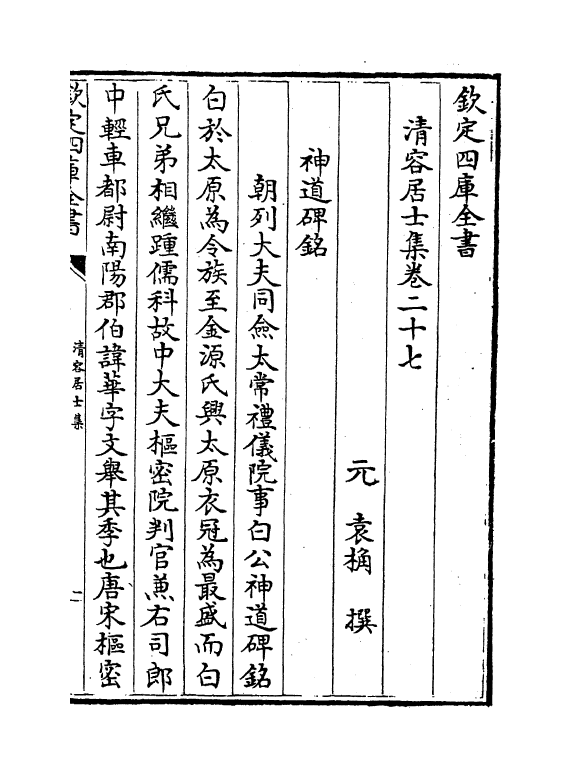 欽定四庫全書
清容居士集卷二十七
元 袁桷 撰
神道碑銘
朝列大夫同僉太常禮儀院事白公神道碑銘
白於太原為令族至金源氏興太原衣冠為最盛而白
氏兄弟相繼踵儒科故中大夫樞密院判官兼右司郎
中輕車都尉南陽郡伯諱華字文舉其季也唐宋樞密
欽定四庫全書
清容居士集